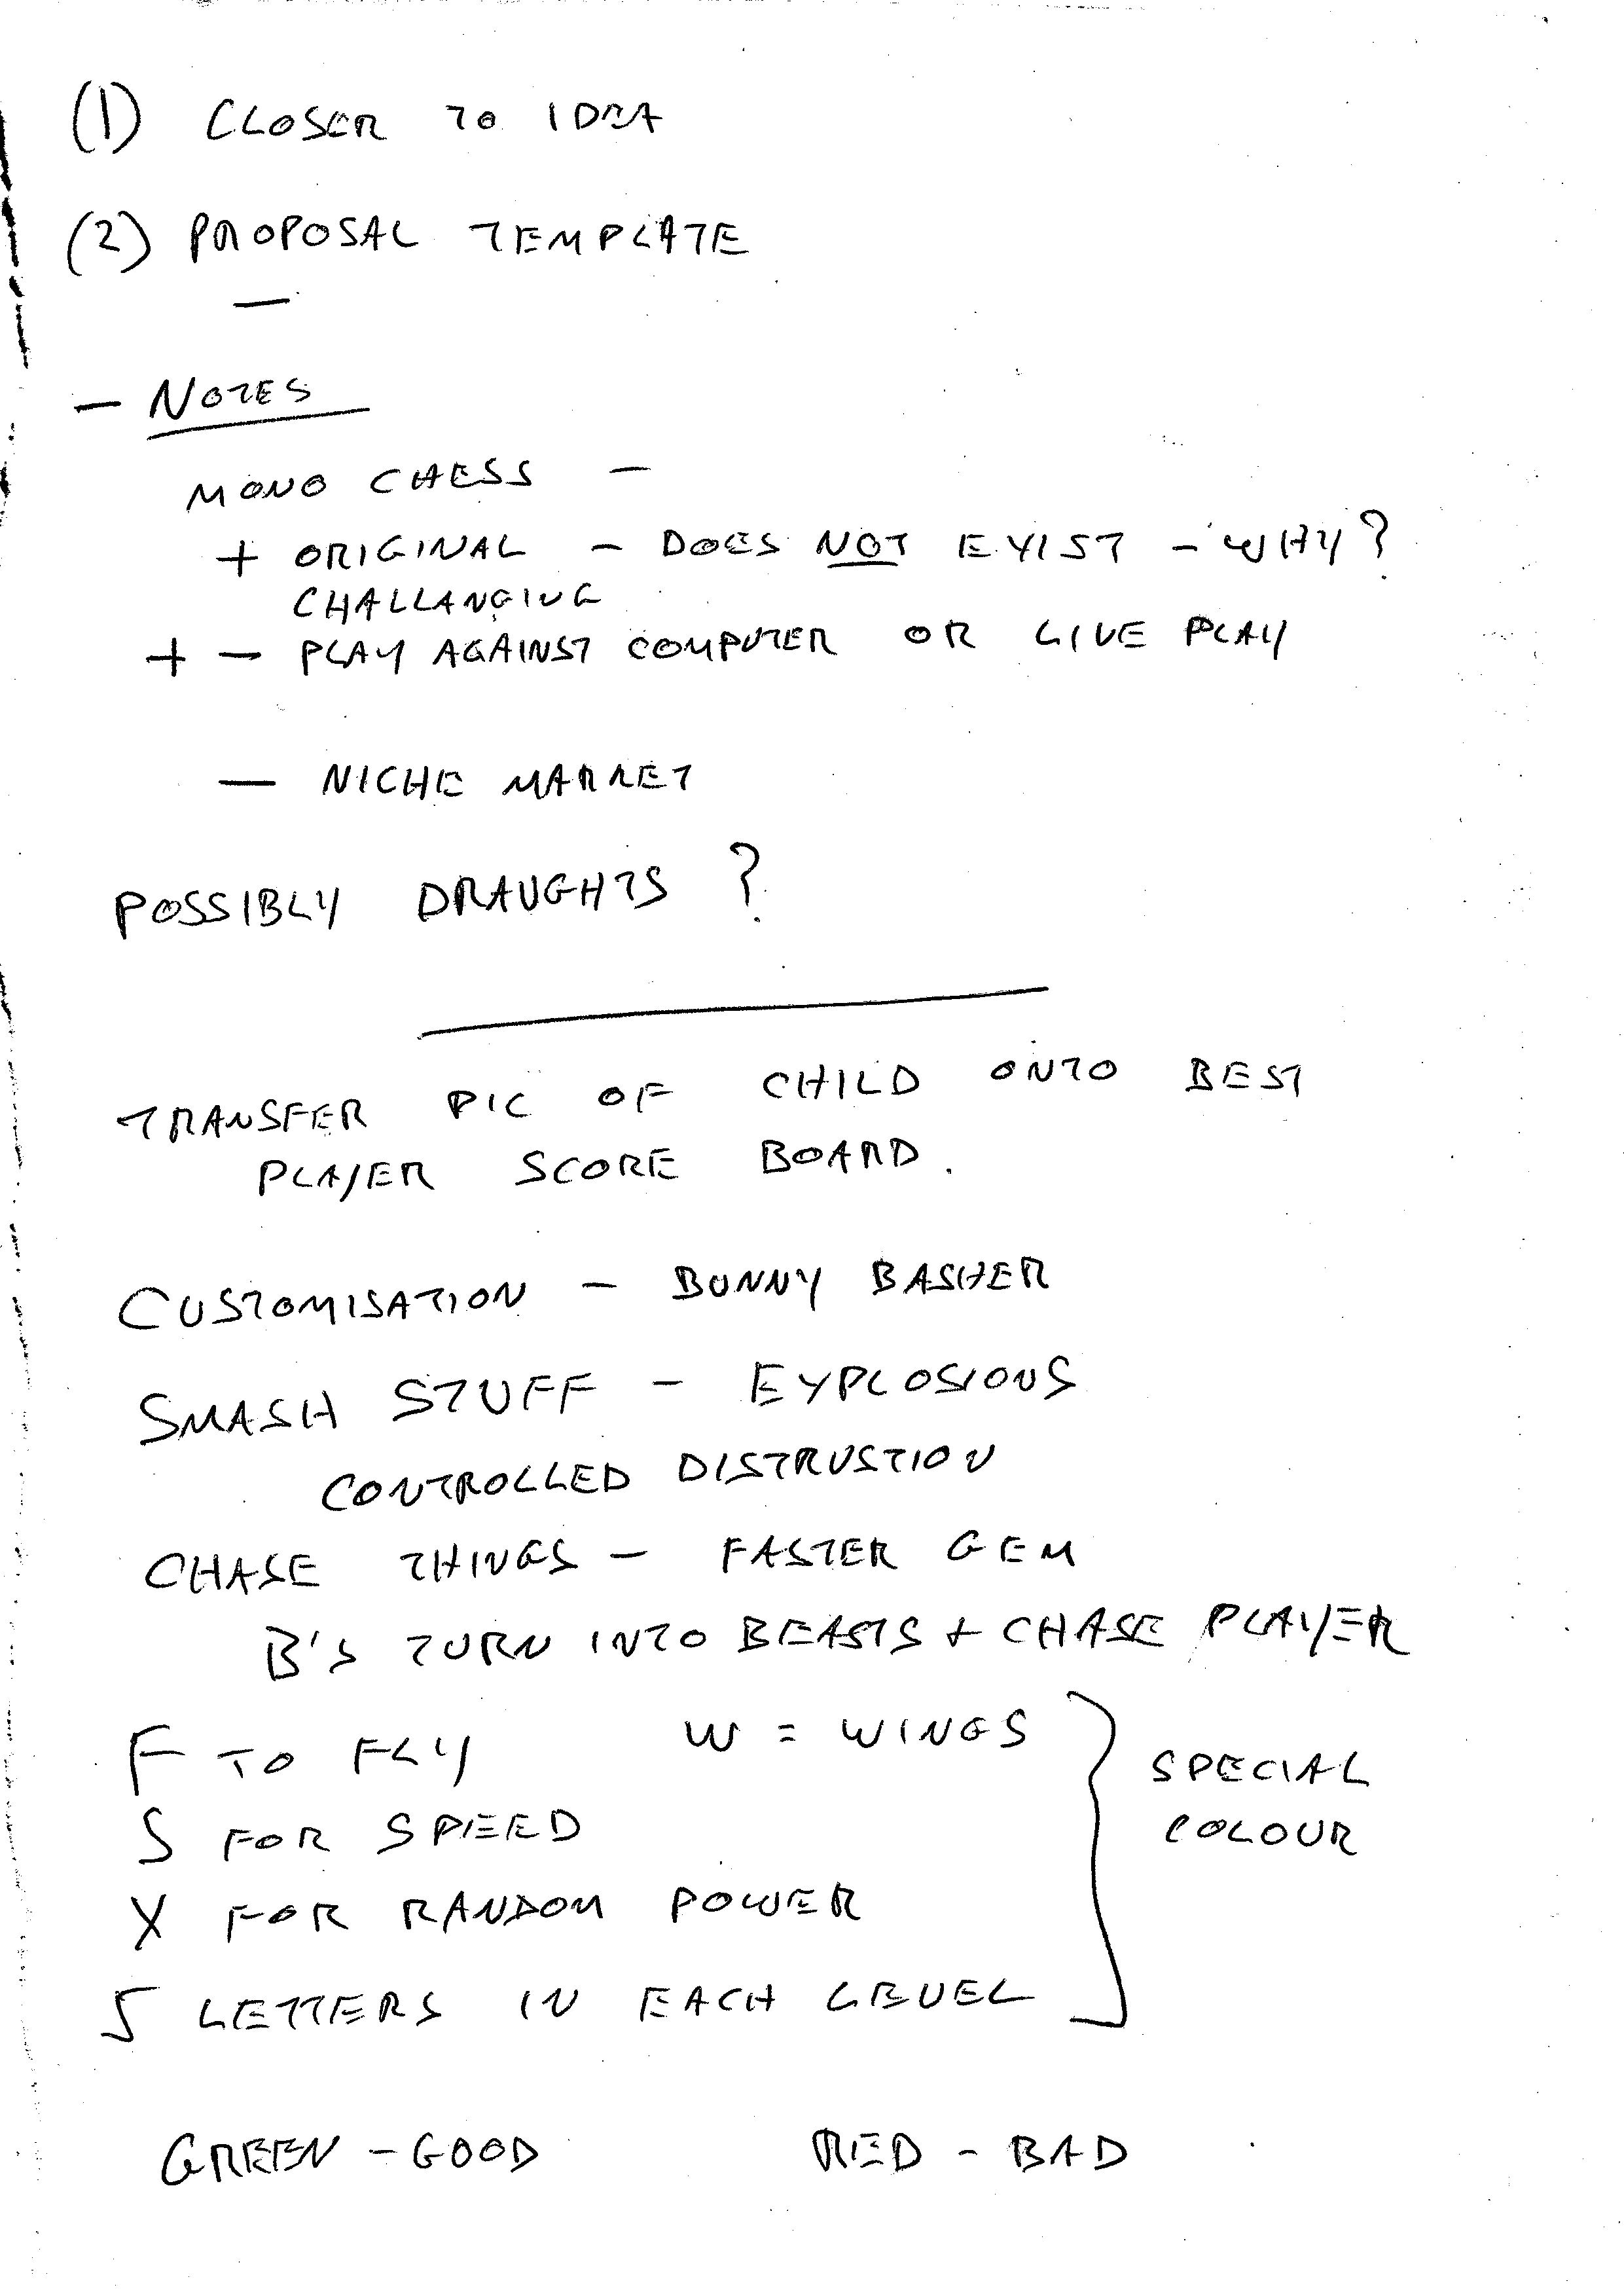 (1) CLOSER TO IDEA
(2) PROPOSAL TEMPLATE
—
— NOTES
MONO CHESS —
+ ORIGINAL — DOES NOT EXIST — WHY?
CHALLANGING
+ — PLAY AGAINST COMPUTER OR LIVE PLAY
— NICHE MARKET
POSSIBLY DRAUGHTS ?
TRANSFER PIC OF CHILD ONTO BEST
PLAYER SCORE BOARD.
CUSTOMISATION — BUNNY BASHER
SMASH STUFF — EXPLOSIONS
CONTROLLED DISTRUSTION
CHASE THINGS — FASTER GEM
B'S TURN INTO BEASTS + CHASE PLAYER
F TO FLY W = WINGS
SPECIAL
S FOR SPEED
COLOUR
X FOR RANDOM POWER
5 LETTERS IN EACH LEVEL
GREEN — GOOD RED — BAD